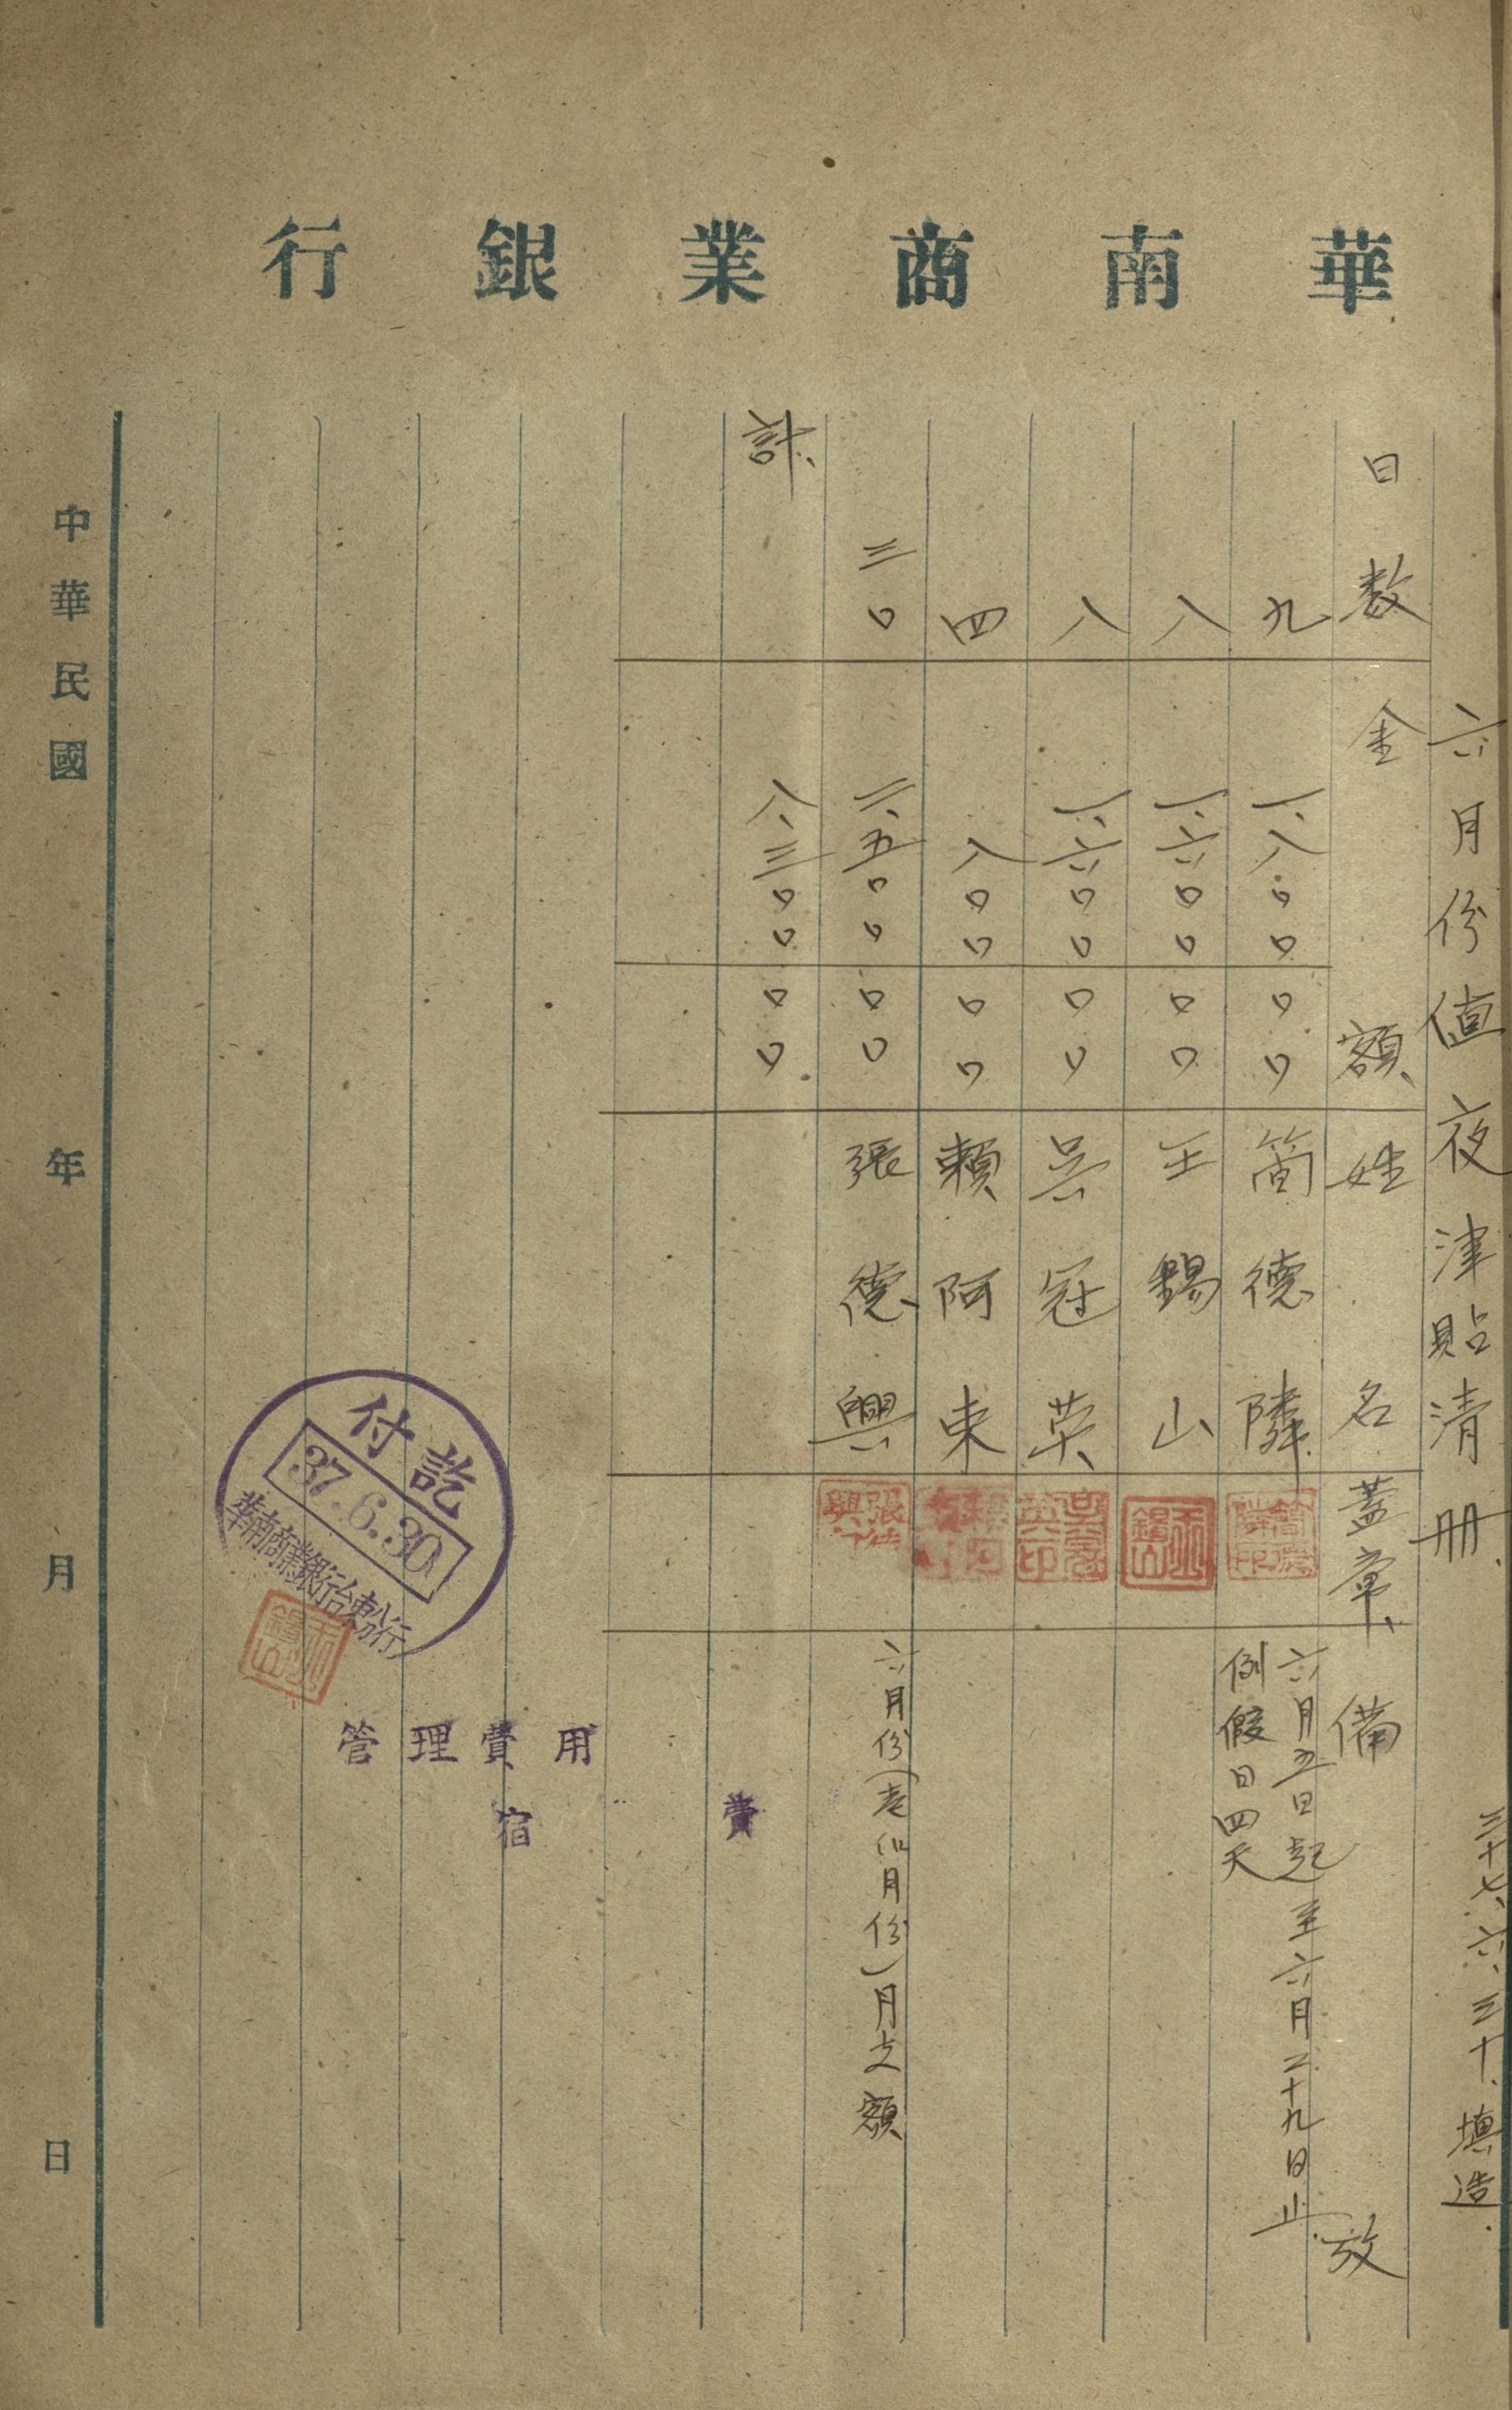 華南商業銀行
六月份值夜津貼清册.
三十七、六、三十、填造.
日数 金額、 姓名 蓋章、 備攷
九 一、八〇〇 〇〇 簡德隣 六月五日起至六月二十九日止.
例假日四天
八 一、六〇〇 〇〇 王錫山
八 一、六〇〇 〇〇 吴冠英
四 八〇〇 〇〇 賴阿東
三〇 二、五〇〇 〇〇 張德興 六月份(壱個月份)月支額
計、 八、三〇〇 〇〇
費
管理費用
宿
付訖
37.6.30
華南商業銀行台東分行
中華民國 年 月 日